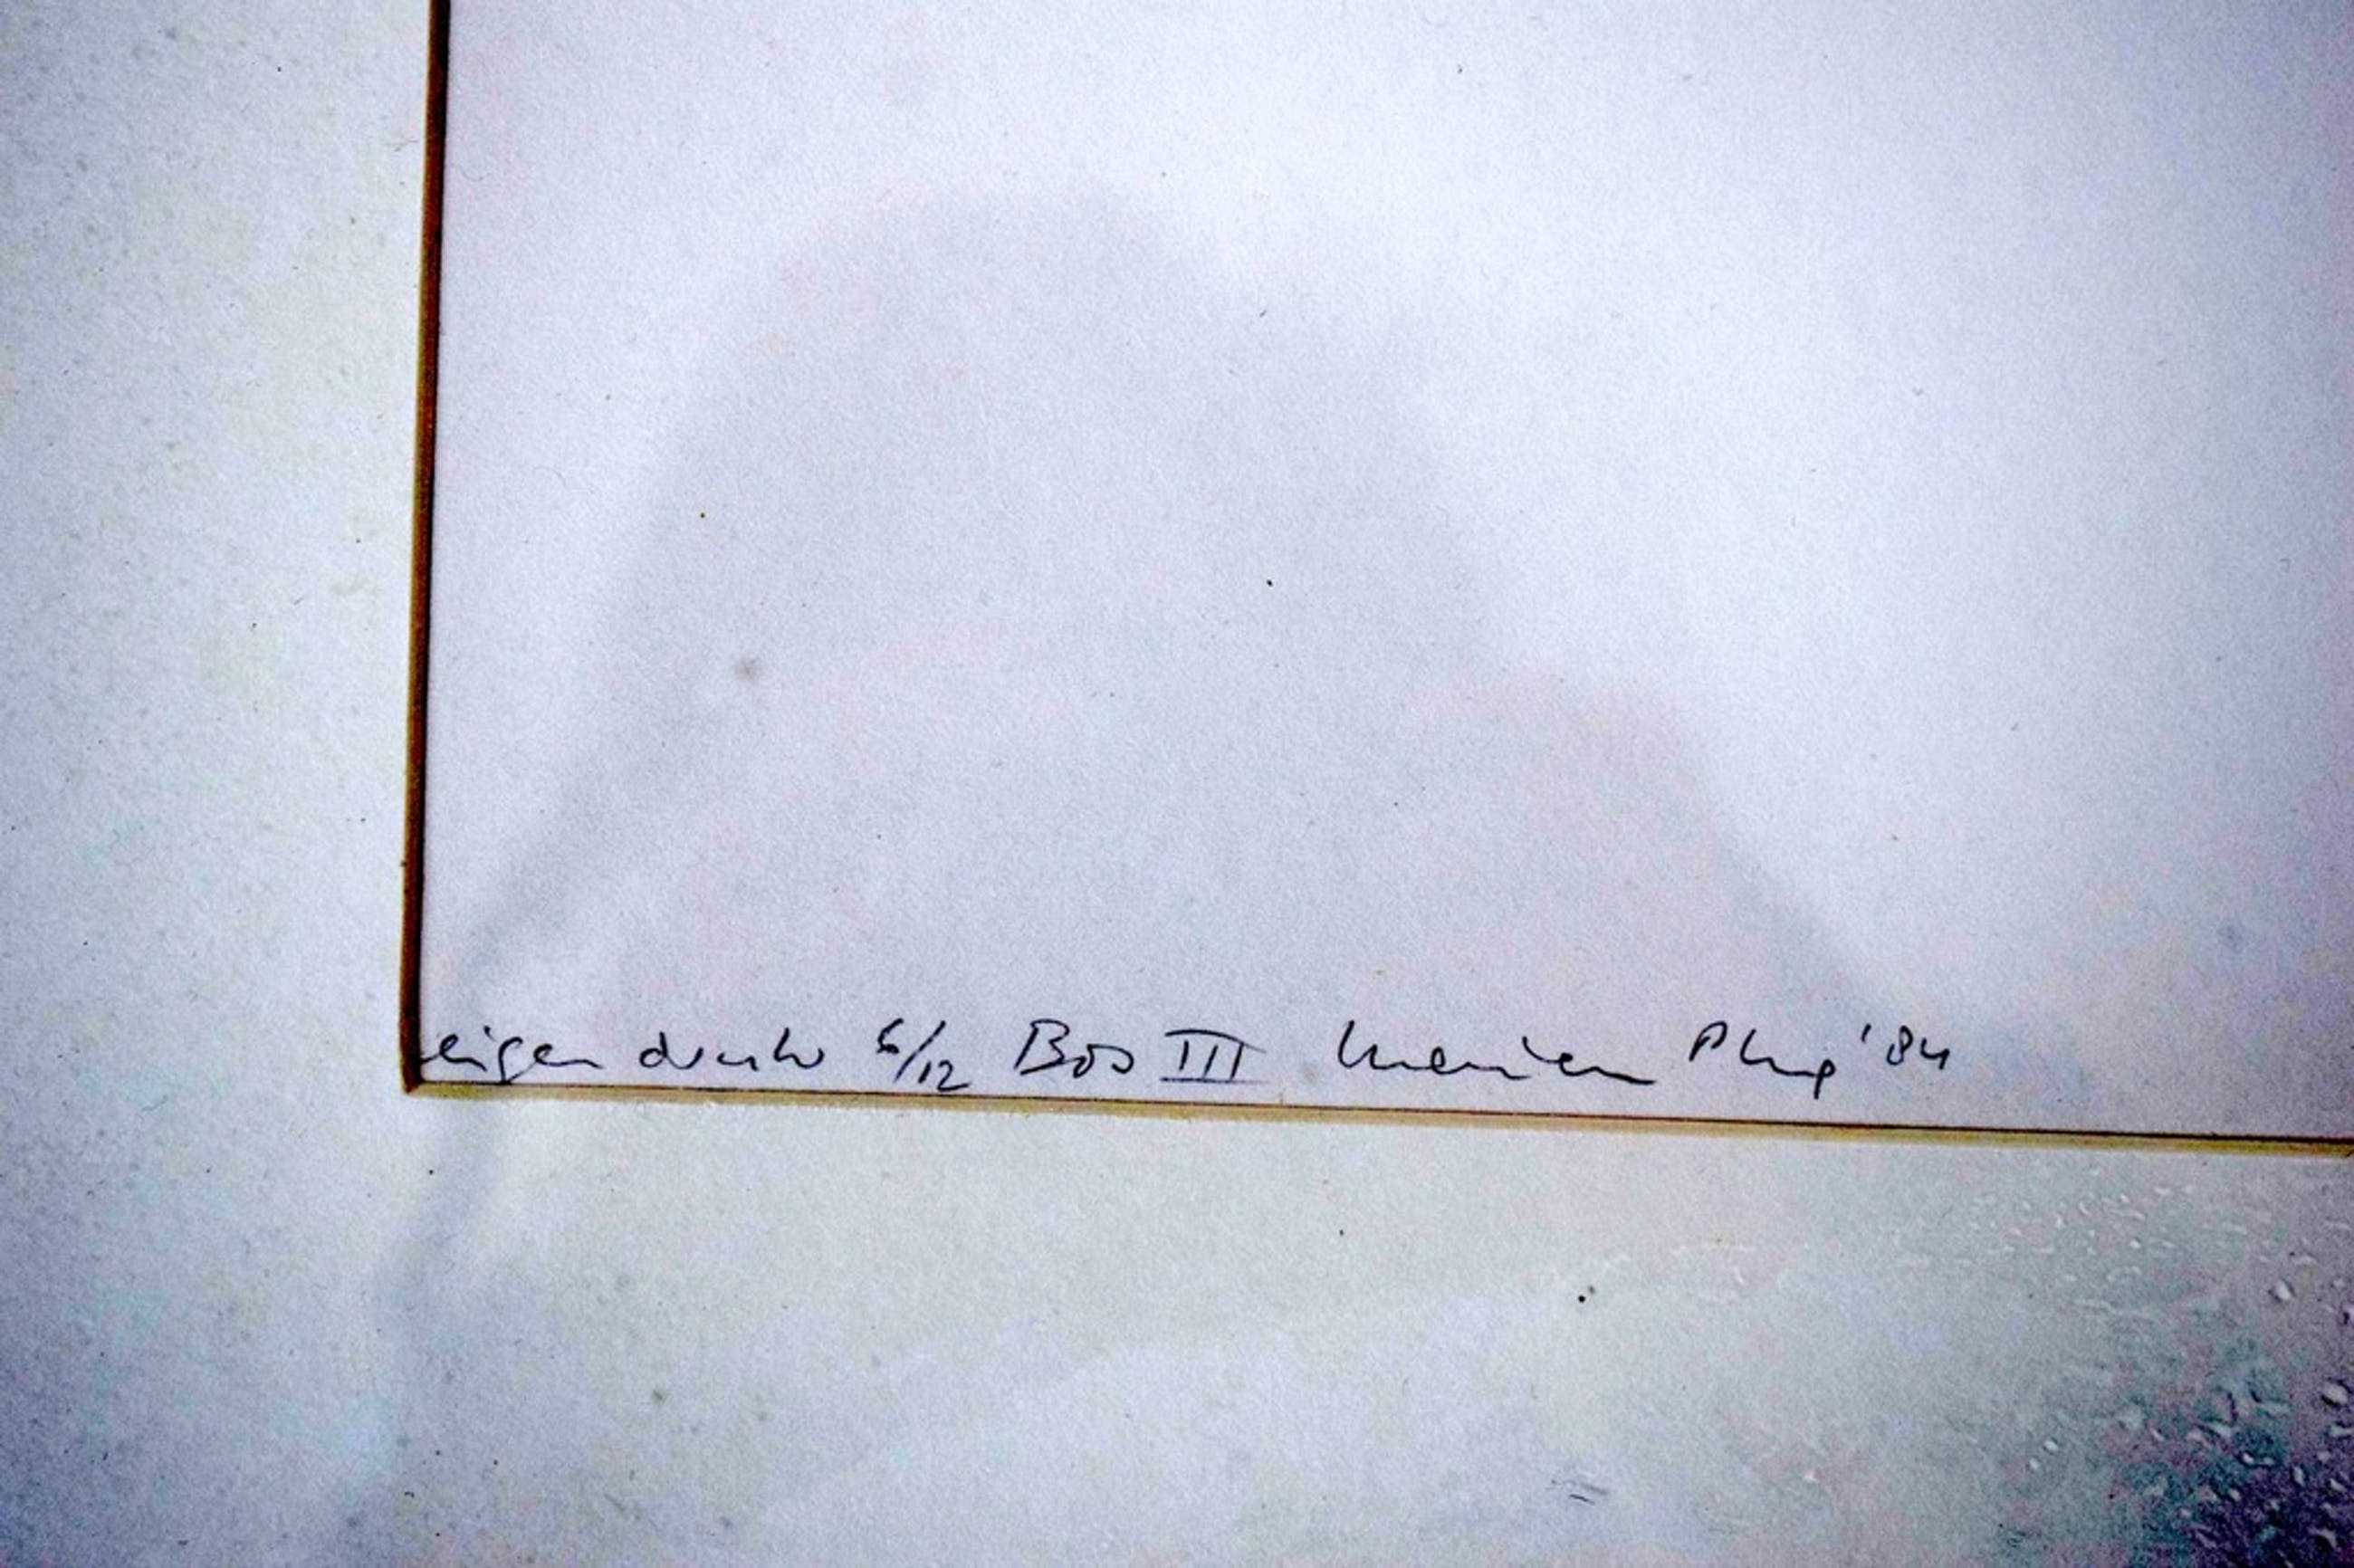 eigen druk 6/12 Bos III Marien Plug '84